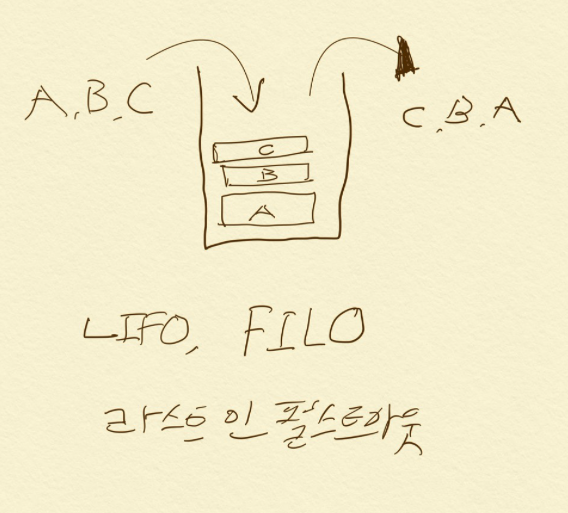 A, B, C
C, B, A
C
B
A
LIFO, FILO
라스트 인 펄스트아웃